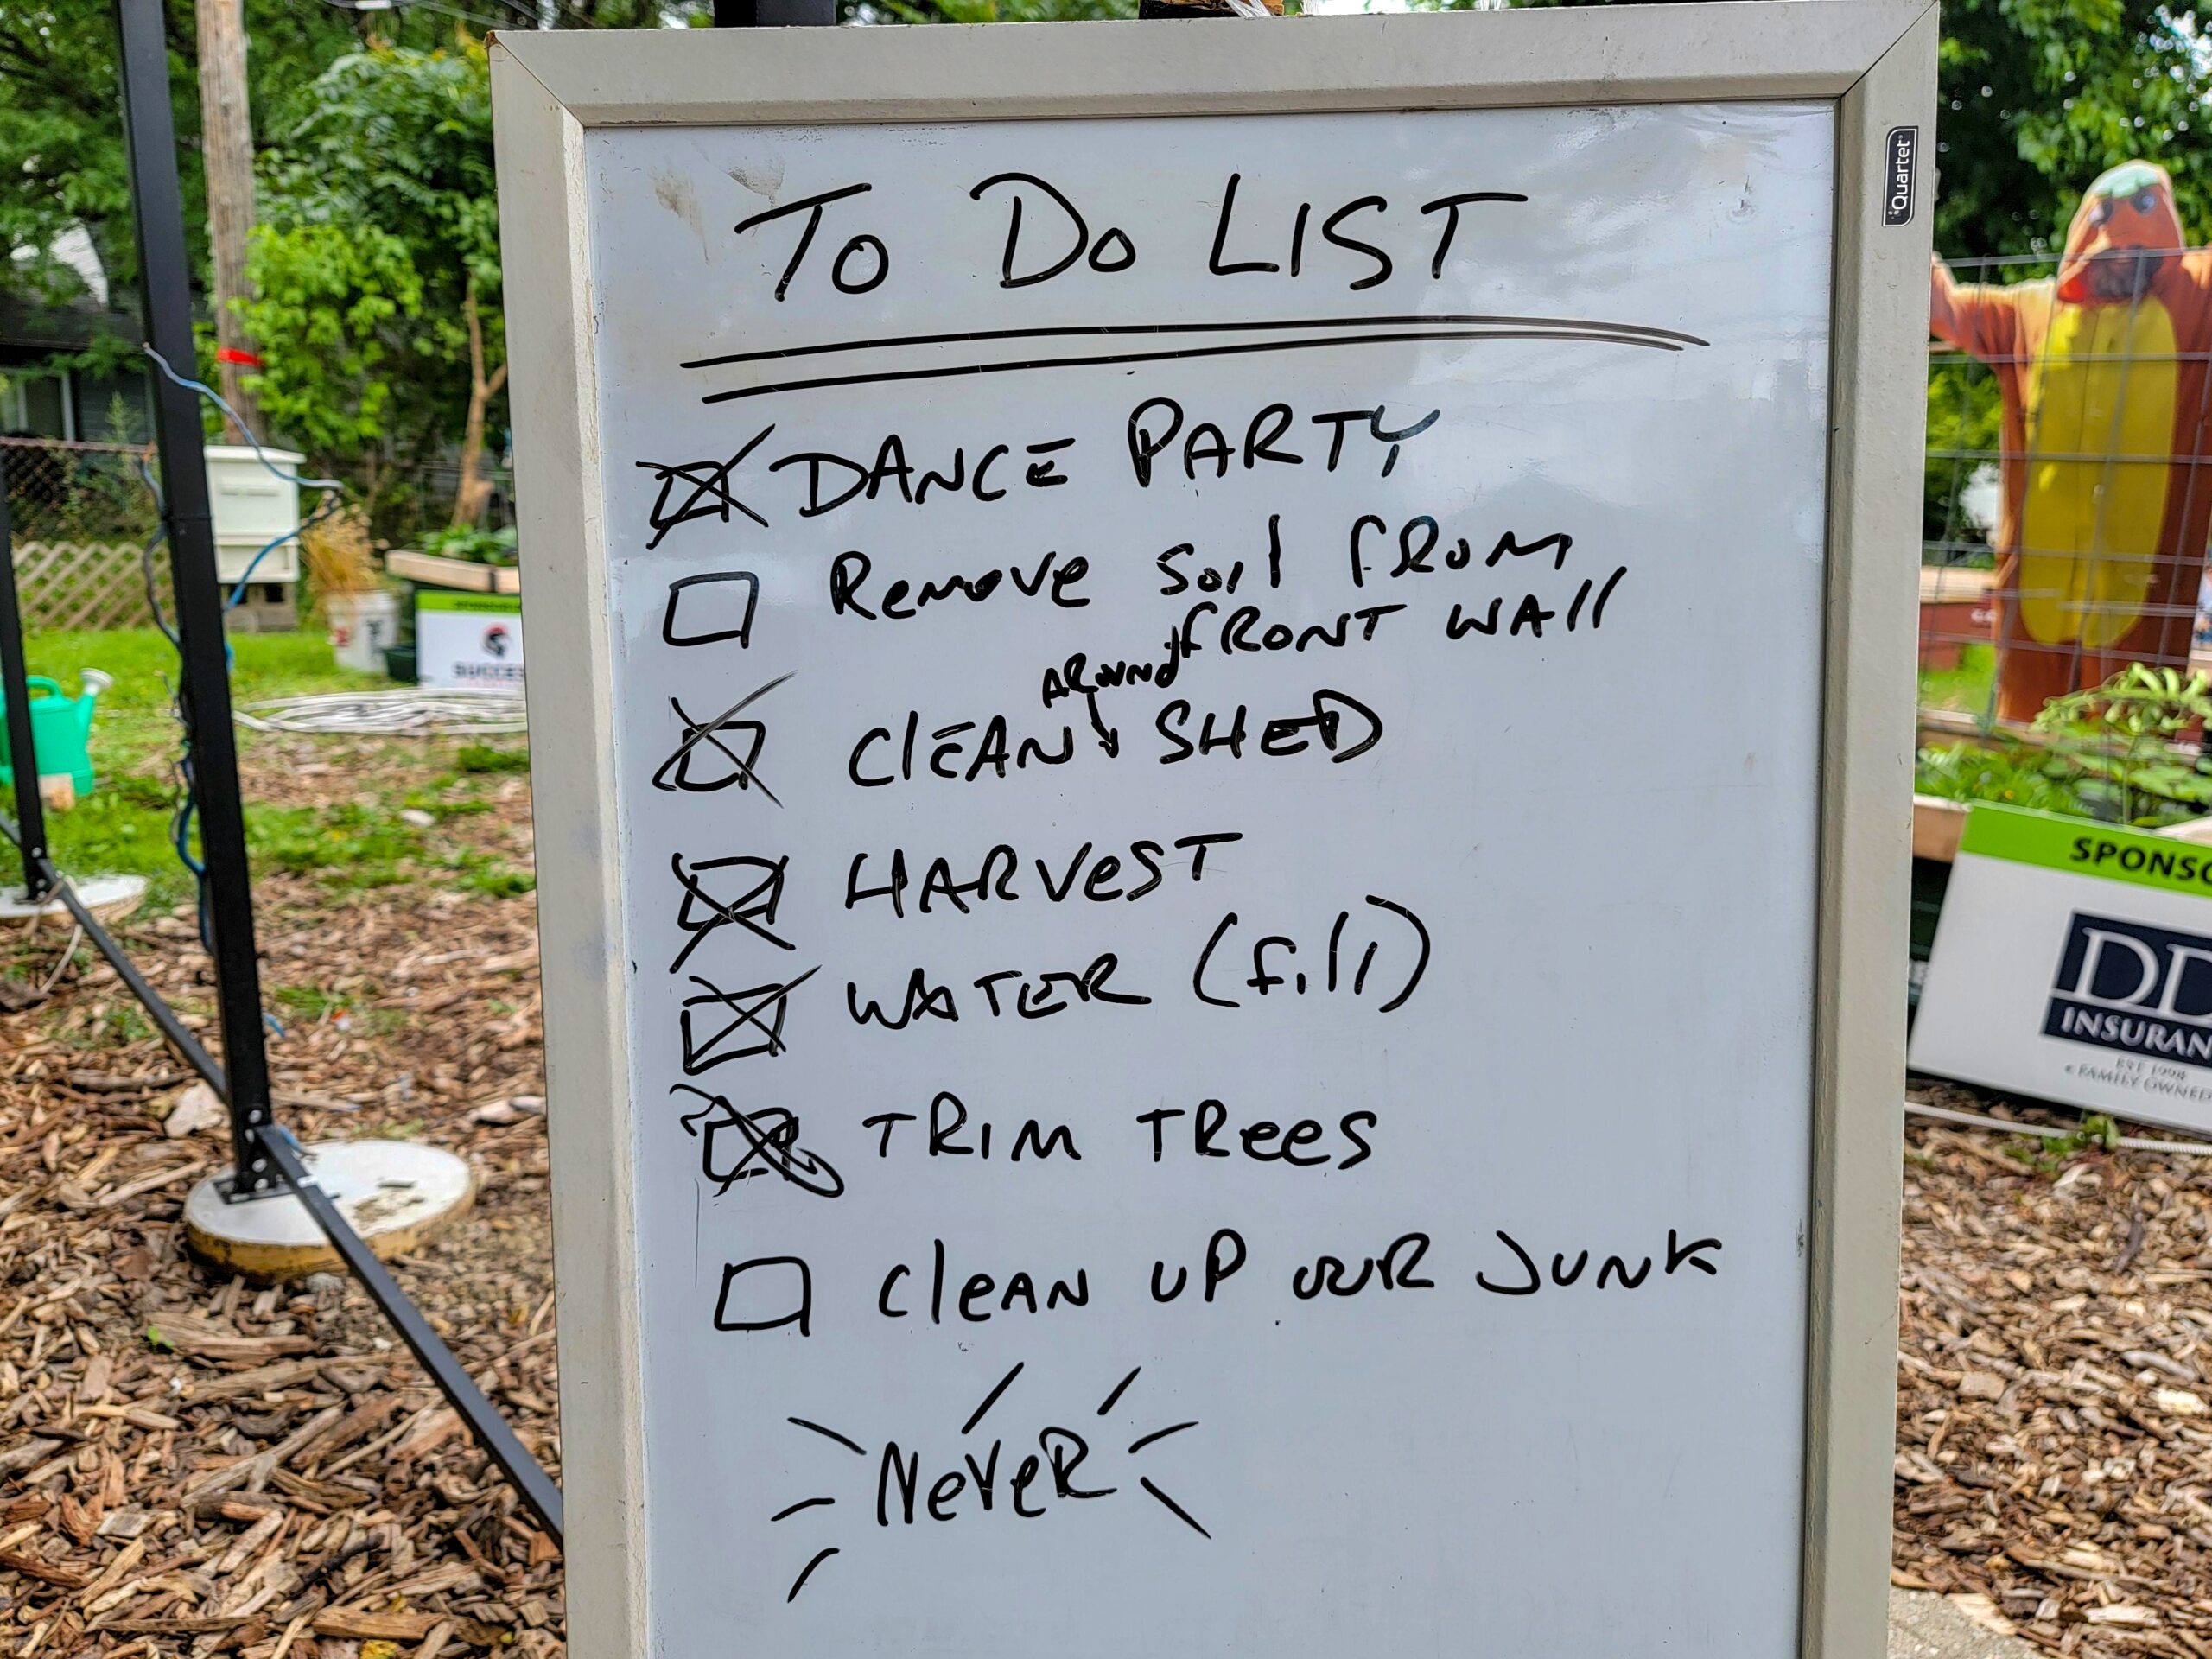 Quartet
To Do LIST
DANCE PARTY
Remove soil from
front wall
AROUND
CleAN SHED
HARVesT
WATER (fill)
TRIM TRees
CleAN UP OUR JUNK
NeveR
SPONSO
DD
INSURAN
EST 1998
FAMILY OWNED
SUCCES